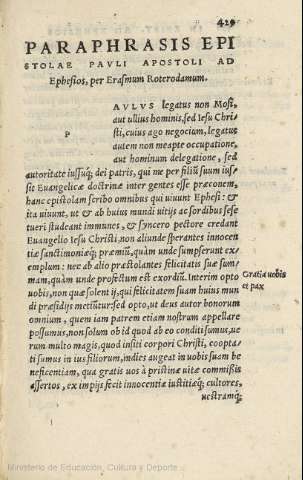 429
PARAPHRASIS EPI
STOLAE PAVLI APOSTOLI AD
Ephesios, per Erasmum Roterodamum.
P
AVLVS legatus non Mosi,
aut ullius hominis, sed Iesu Chri
sti, cuius ago negocium, legatus
autem non meapte occupatione,
aut hominum delegatione, sed
autoritate iussuq́; dei patris, qui me per filiũ suum ius
sit Euangelicæ doctrinæ inter gentes esse præconem,
hanc epistolam scribo omnibus qui uiuunt Ephesi: &
ita uiuunt, ut & ab huius mundi uitijs ac sordibus sese
tueri studeant immunes, & syncero pectore credant
Euangelio Iesu Christi, non aliunde sperantes innocen
tiæ sanctimoniæq́; præmiũ, quàm unde sumpserunt ex-
emplum: nec ab alio præstolantes felicitatis suæ sum-
mam, quàm unde profectum est exordiũ. Interim opto
Gratia uobis
uobis, non quæ solent ij, qui felicitatem suam huius mun
et pax
di præsidijs metiũtur: sed opto, ut deus autor bonorum
omnium, quem iam patrem etiam nostrum appellare
possumus, non solum ob id quod ab eo conditi sumus, ue
rum multo magis, quod insiti corpori Christi, coopta-
ti sumus in ius filiorum, indies augeat in uobis suam be
neficentiam, qua gratis uos à pristinæ uitæ commissis
assertos, ex impijs fecit innocentiæ iustitiæq́; cultores,
uestramq́;
Ministerio de Educación, Cultura y Deporte